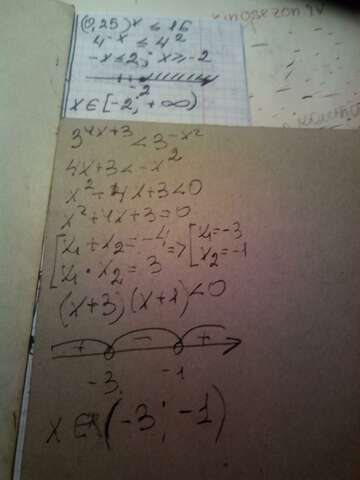 (0,25)^x ≤ 16
4^-x ≤ 4^2
-x ≤ 2; x ≥ -2
-2
x ∈ [-2; +∞)
3^4x+3 < 3^-x^2
4x+3 < -x^2
x^2+4x+3<0
x^2+4x+3=0
[x₁+x₂=-4 => [x₁=-3
[x₁·x₂=3 x₂=-1
(x+3)(x+1)<0
+ - +
-3 -1
x ∈ (-3; -1)